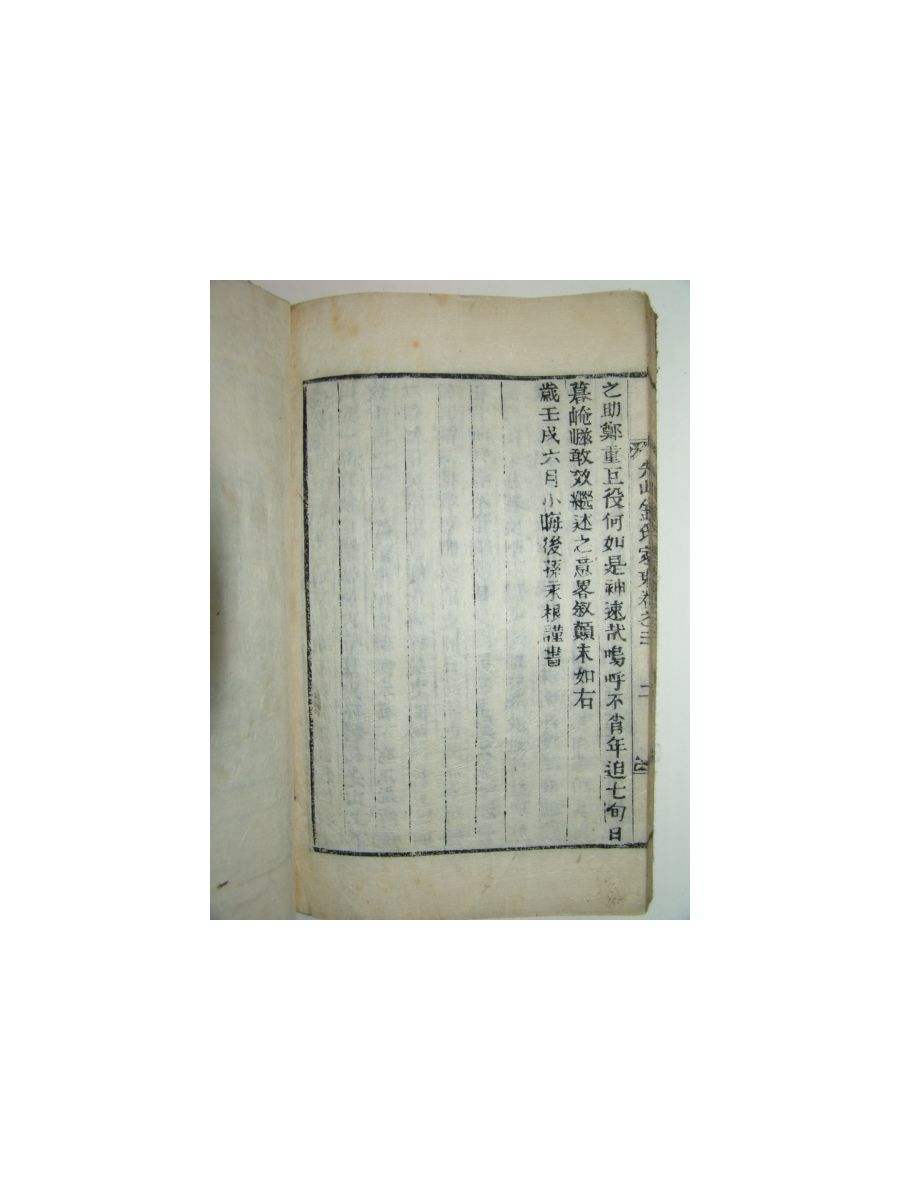 之助鄭重巨役何如是神速哉嗚呼不肖年迫七旬日
暮崦嵫敢效繼述之意畧叙顛末如右
歲壬戌六月小晦後孫永根謹書
山金氏家乗卷之三 二